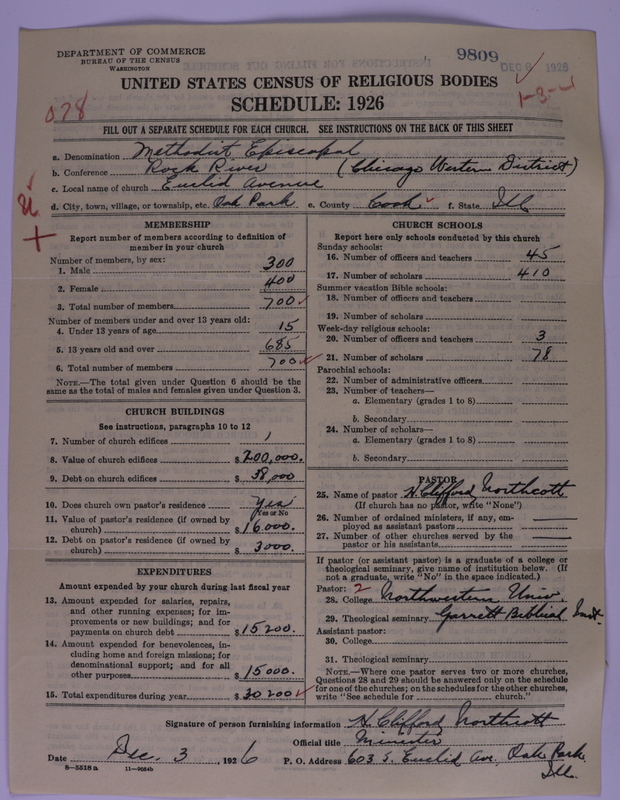 DEPARTMENT OF COMMERCE
BUREAU OF THE CENSUS
WASHINGTON
9809
DEC 6 1926
UNITED STATES CENSUS OF RELIGIOUS BODIES
SCHEDULE: 1926
078
1-3-
FILL OUT A SEPARATE SCHEDULE FOR EACH CHURCH. SEE INSTRUCTIONS ON THE BACK OF THIS SHEET
a. Denomination Methodist Episcopal
b. Conference Rock River (Chicago Western District)
c. Local name of church Euclid Avenue
d. City, town, village, or township, etc. Oak Park e. County Cook f. State Ill
MEMBERSHIP
Report number of members according to definition of
member in your church
Number of members, by sex:
1. Male 300
2. Female 400
3. Total number of members 700
Number of members under and over 13 years old:
4. Under 13 years of age 15
5. 13 years old and over 685
6. Total number of members 700
NOTE.—The total given under Question 6 should be the
same as the total of males and females given under Question 3.
CHURCH BUILDINGS
See instructions, paragraphs 10 to 12
7. Number of church edifices 1
8. Value of church edifices $ 200,000.
9. Debt on church edifices $ 38,000
10. Does church own pastor's residence Yes
(Yes or No
11. Value of pastor's residence (if owned by
church) $ 16000.
12. Debt on pastor's residence (if owned by
church) $ 3000.
EXPENDITURES
Amount expended by your church during last fiscal year
13. Amount expended for salaries, repairs,
and other running expenses; for im-
provements or new buildings; and for
payments on church debt $ 15200.
14. Amount expended for benevolences, in-
cluding home and foreign missions; for
denominational support; and for all
other purposes $ 15000.
15. Total expenditures during year $ 30200
CHURCH SCHOOLS
Report here only schools conducted by this church
Sunday schools:
16. Number of officers and teachers 45
17. Number of scholars 410
Summer vacation Bible schools:
18. Number of officers and teachers
19. Number of scholars
Week-day religious schools:
20. Number of officers and teachers 3
21. Number of scholars 78
Parochial schools:
22. Number of administrative officers
23. Number of teachers—
a. Elementary (grades 1 to 8)
b. Secondary
24. Number of scholars—
a. Elementary (grades 1 to 8)
b. Secondary
PASTOR
25. Name of pastor H. Clifford Northcott
(If church has no pastor, write "None")
26. Number of ordained ministers, if any, em-
ployed as assistant pastors
27. Number of other churches served by the
pastor or his assistants
If pastor (or assistant pastor) is a graduate of a college or
theological seminary, give name of institution below. (If
not a graduate, write "No" in the space indicated.)
Pastor: 2
28. College Northwestern Univ.
29. Theological seminary Garrett Biblical Inst.
Assistant pastor:
30. College
31. Theological seminary
NOTE.—Where one pastor serves two or more churches,
Questions 28 and 29 should be answered only on the schedule
for one of the churches; on the schedules for the other churches,
write "See schedule for church."
Signature of person furnishing information H. Clifford Northcott
Official title Minister
Date Dec. 3, 1926 P. O. Address 603 S. Euclid Ave. Oak Park
Ill.
8—5518 a 11—9654b